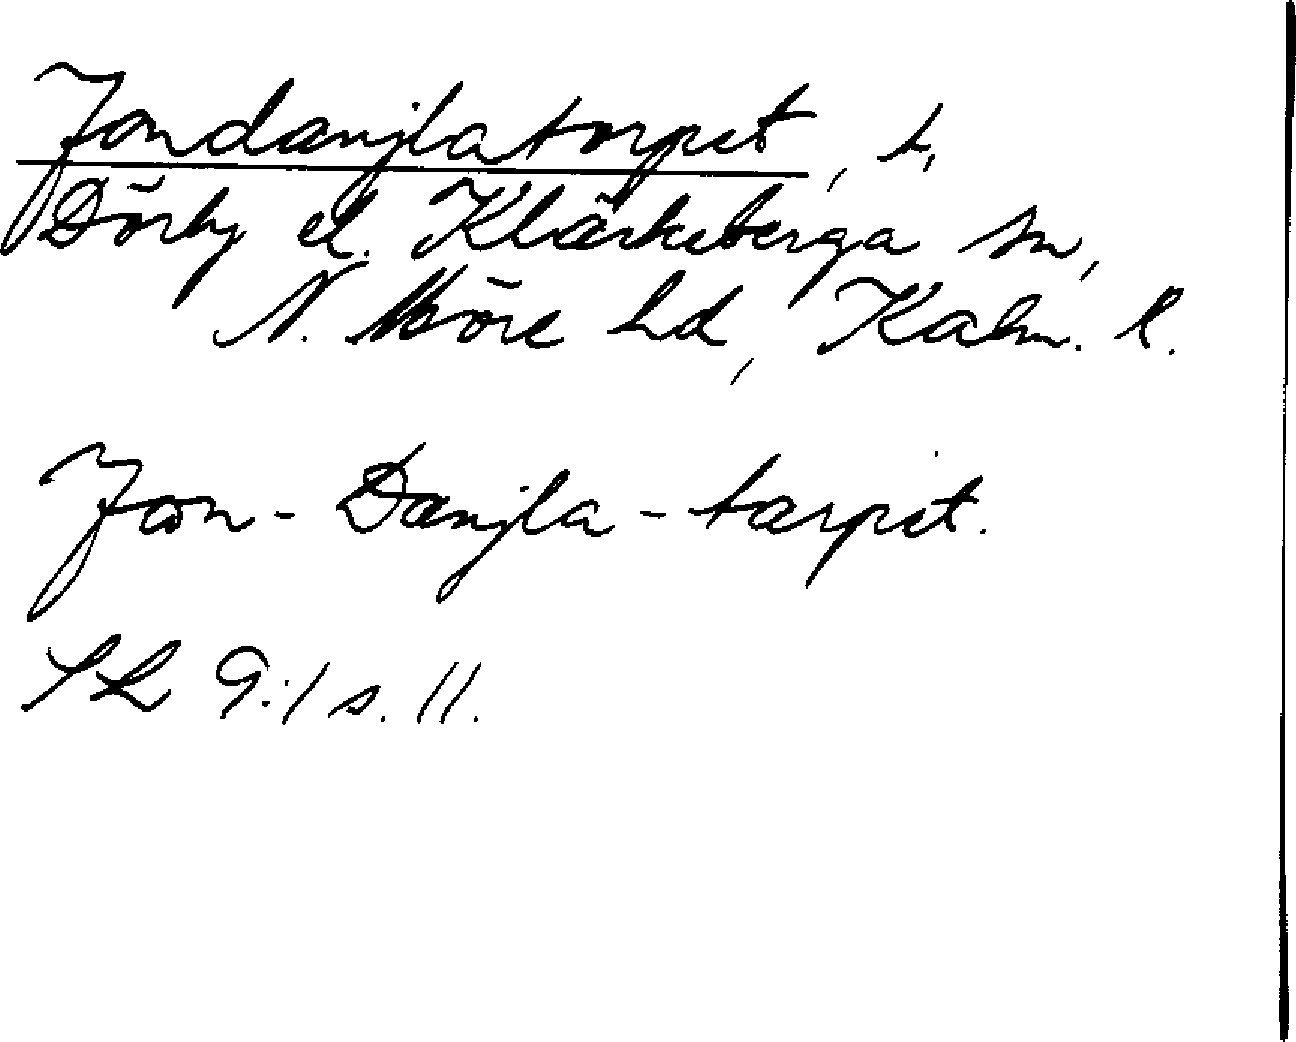 Jondanjlatorpet, t,
Dörby el. Kläckeberga sn,
N. Möre hd, Kalm. l.
Jon-Danjla-tarpet.
SL 9:1 s. 11.